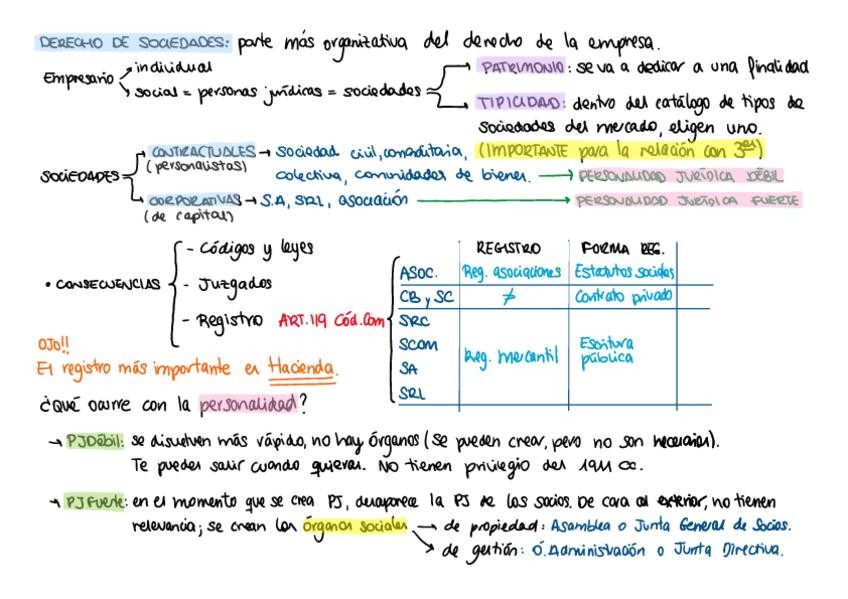 DERECHO DE SOCIEDADES: parte más organizativa del derecho de la empresa.
Empresario
individual
social = personas jurídicas = sociedades =
PATRIMONIO: se va a dedicar a una finalidad
TIPICIDAD: dentro del catálogo de tipos de
sociedades del mercado, eligen uno.
(IMPORTANTE para la relación con 3ero)
SOCIEDADES =
CONTRACTUALES → sociedad civil, comanditaria,
(personalistas)
colectiva, comunidades de bienes. → PERSONALIDAD JURÍDICA DÉBIL
CORPORATIVAS → S.A, SRL, asociación → PERSONALIDAD JURÍDICA FUERTE
(de capital)
• CONSECUENCIAS
- Códigos y leyes
- Juzgados
- Registro ART. 119 Cód.Com
REGISTRO FORMA REG.
ASOC. Reg. asociaciones Estatutos sociales
CB y SC ≠ Contrato privado
SRC
SCOM
SA
SRL
Reg. mercantil
Escritura
pública
OJO!!
El registro más importante es Hacienda.
¿Qué ocurre con la personalidad?
→ PJDébil: se disuelven más rápido, no hay órganos (se pueden crear, pero no son necesarios).
Te puedes salir cuando quieras. NO tienen privilegio del 1911 CC.
→ PJFuerte: en el momento que se crea PJ, desaparece la PJ de los socios. De cara al exterior, no tienen
relevancia; se crean los órganos sociales → de propiedad: Asamblea o Junta General de Socios.
de gestión: Ó.Administración o Junta Directiva.